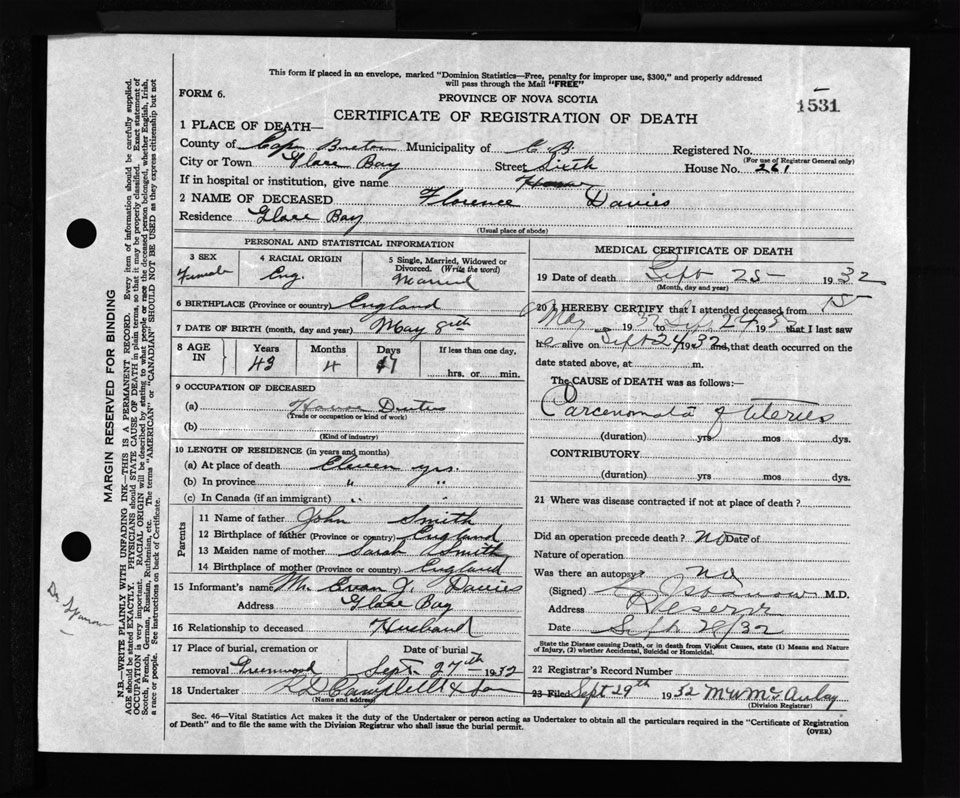 This form if placed in an envelope, marked "Dominion Statistics—Free, penalty for improper use, $300," and properly addressed
will pass through the Mail "FREE"
FORM 6.
PROVINCE OF NOVA SCOTIA
1531
CERTIFICATE OF REGISTRATION OF DEATH
1 PLACE OF DEATH—
County of Cape Breton Municipality of C B Registered No.
(For use of Registrar General only)
City or Town Glace Bay Street Sixth House No. 261
If in hospital or institution, give name Home
2 NAME OF DECEASED Florence Davies
Residence Glace Bay
(Usual place of abode)
PERSONAL AND STATISTICAL INFORMATION
3 SEX
Female
4 RACIAL ORIGIN
Eng.
5 Single, Married, Widowed or
Divorced. (Write the word)
Married
6 BIRTHPLACE (Province or country) England
7 DATE OF BIRTH (month, day and year) May 8th
8 AGE IN
Years Months Days If less than one day,
43 4 17
hrs. or min.
9 OCCUPATION OF DECEASED
(a) House Duties
(Trade or occupation or kind of work)
(b)
(Kind of industry)
10 LENGTH OF RESIDENCE (in years and months)
(a) At place of death Eleven yrs.
(b) In province " "
(c) In Canada (if an immigrant) " "
Parents
11 Name of father John Smith
12 Birthplace of father (Province or country) England
13 Maiden name of mother Sarah Smith
14 Birthplace of mother (Province or country) England
15 Informant's name Mr. Evan J. Davies
Address Glace Bay
16 Relationship to deceased Husband
17 Place of burial, cremation or
removal Greenwood
Date of burial
Sept 27th 1932
18 Undertaker Campbell & Son
(Name and address)
MEDICAL CERTIFICATE OF DEATH
19 Date of death Sept 25 1932
(Month, day and year)
20 I HEREBY CERTIFY that I attended deceased from
May 15 1932 to Sep 24 1932 that I last saw
her alive on Sept 24 1932 and, that death occurred on the
date stated above, at m.
The CAUSE of DEATH was as follows:—
Carcenomata of Uterus
(duration) yrs mos dys.
CONTRIBUTORY
(duration) yrs. mos dys.
21 Where was disease contracted if not at place of death?
Did an operation precede death? No Date of
Nature of operation
Was there an autopsy No
(Signed) M.D.
Address Reserve
Date Sept 28/32
State the Disease causing Death, or in death from Violent Causes, state (1) Means and Nature
of Injury, (2) whether Accidental, Suicidal or Homicidal.
22 Registrar's Record Number
23 Filed Sept 29th 1932 M W McAulay
(Division Registrar)
Sec. 46—Vital Statistics Act makes it the duty of the Undertaker or person acting as Undertaker to obtain all the particulars required in the "Certificate of Registration
of Death" and to file the same with the Division Registrar who shall issue the burial permit.
(OVER)
MARGIN RESERVED FOR BINDING
N.B.—WRITE PLAINLY WITH UNFADING INK—THIS IS A PERMANENT RECORD. Every item of information should be carefully supplied.
AGE should be stated EXACTLY. PHYSICIANS should STATE CAUSE OF DEATH in plain terms, so that it may be properly classified. Exact statement of
OCCUPATION is very important. RACIAL ORIGIN will be described by stating to what people or race the deceased person belonged, whether English, Irish,
Scotch, French, German, Russian, Ruthenian, etc. The terms "AMERICAN" or "CANADIAN" SHOULD NOT BE USED as they express citizenship but not
a race or people. See instructions on back of Certificate.